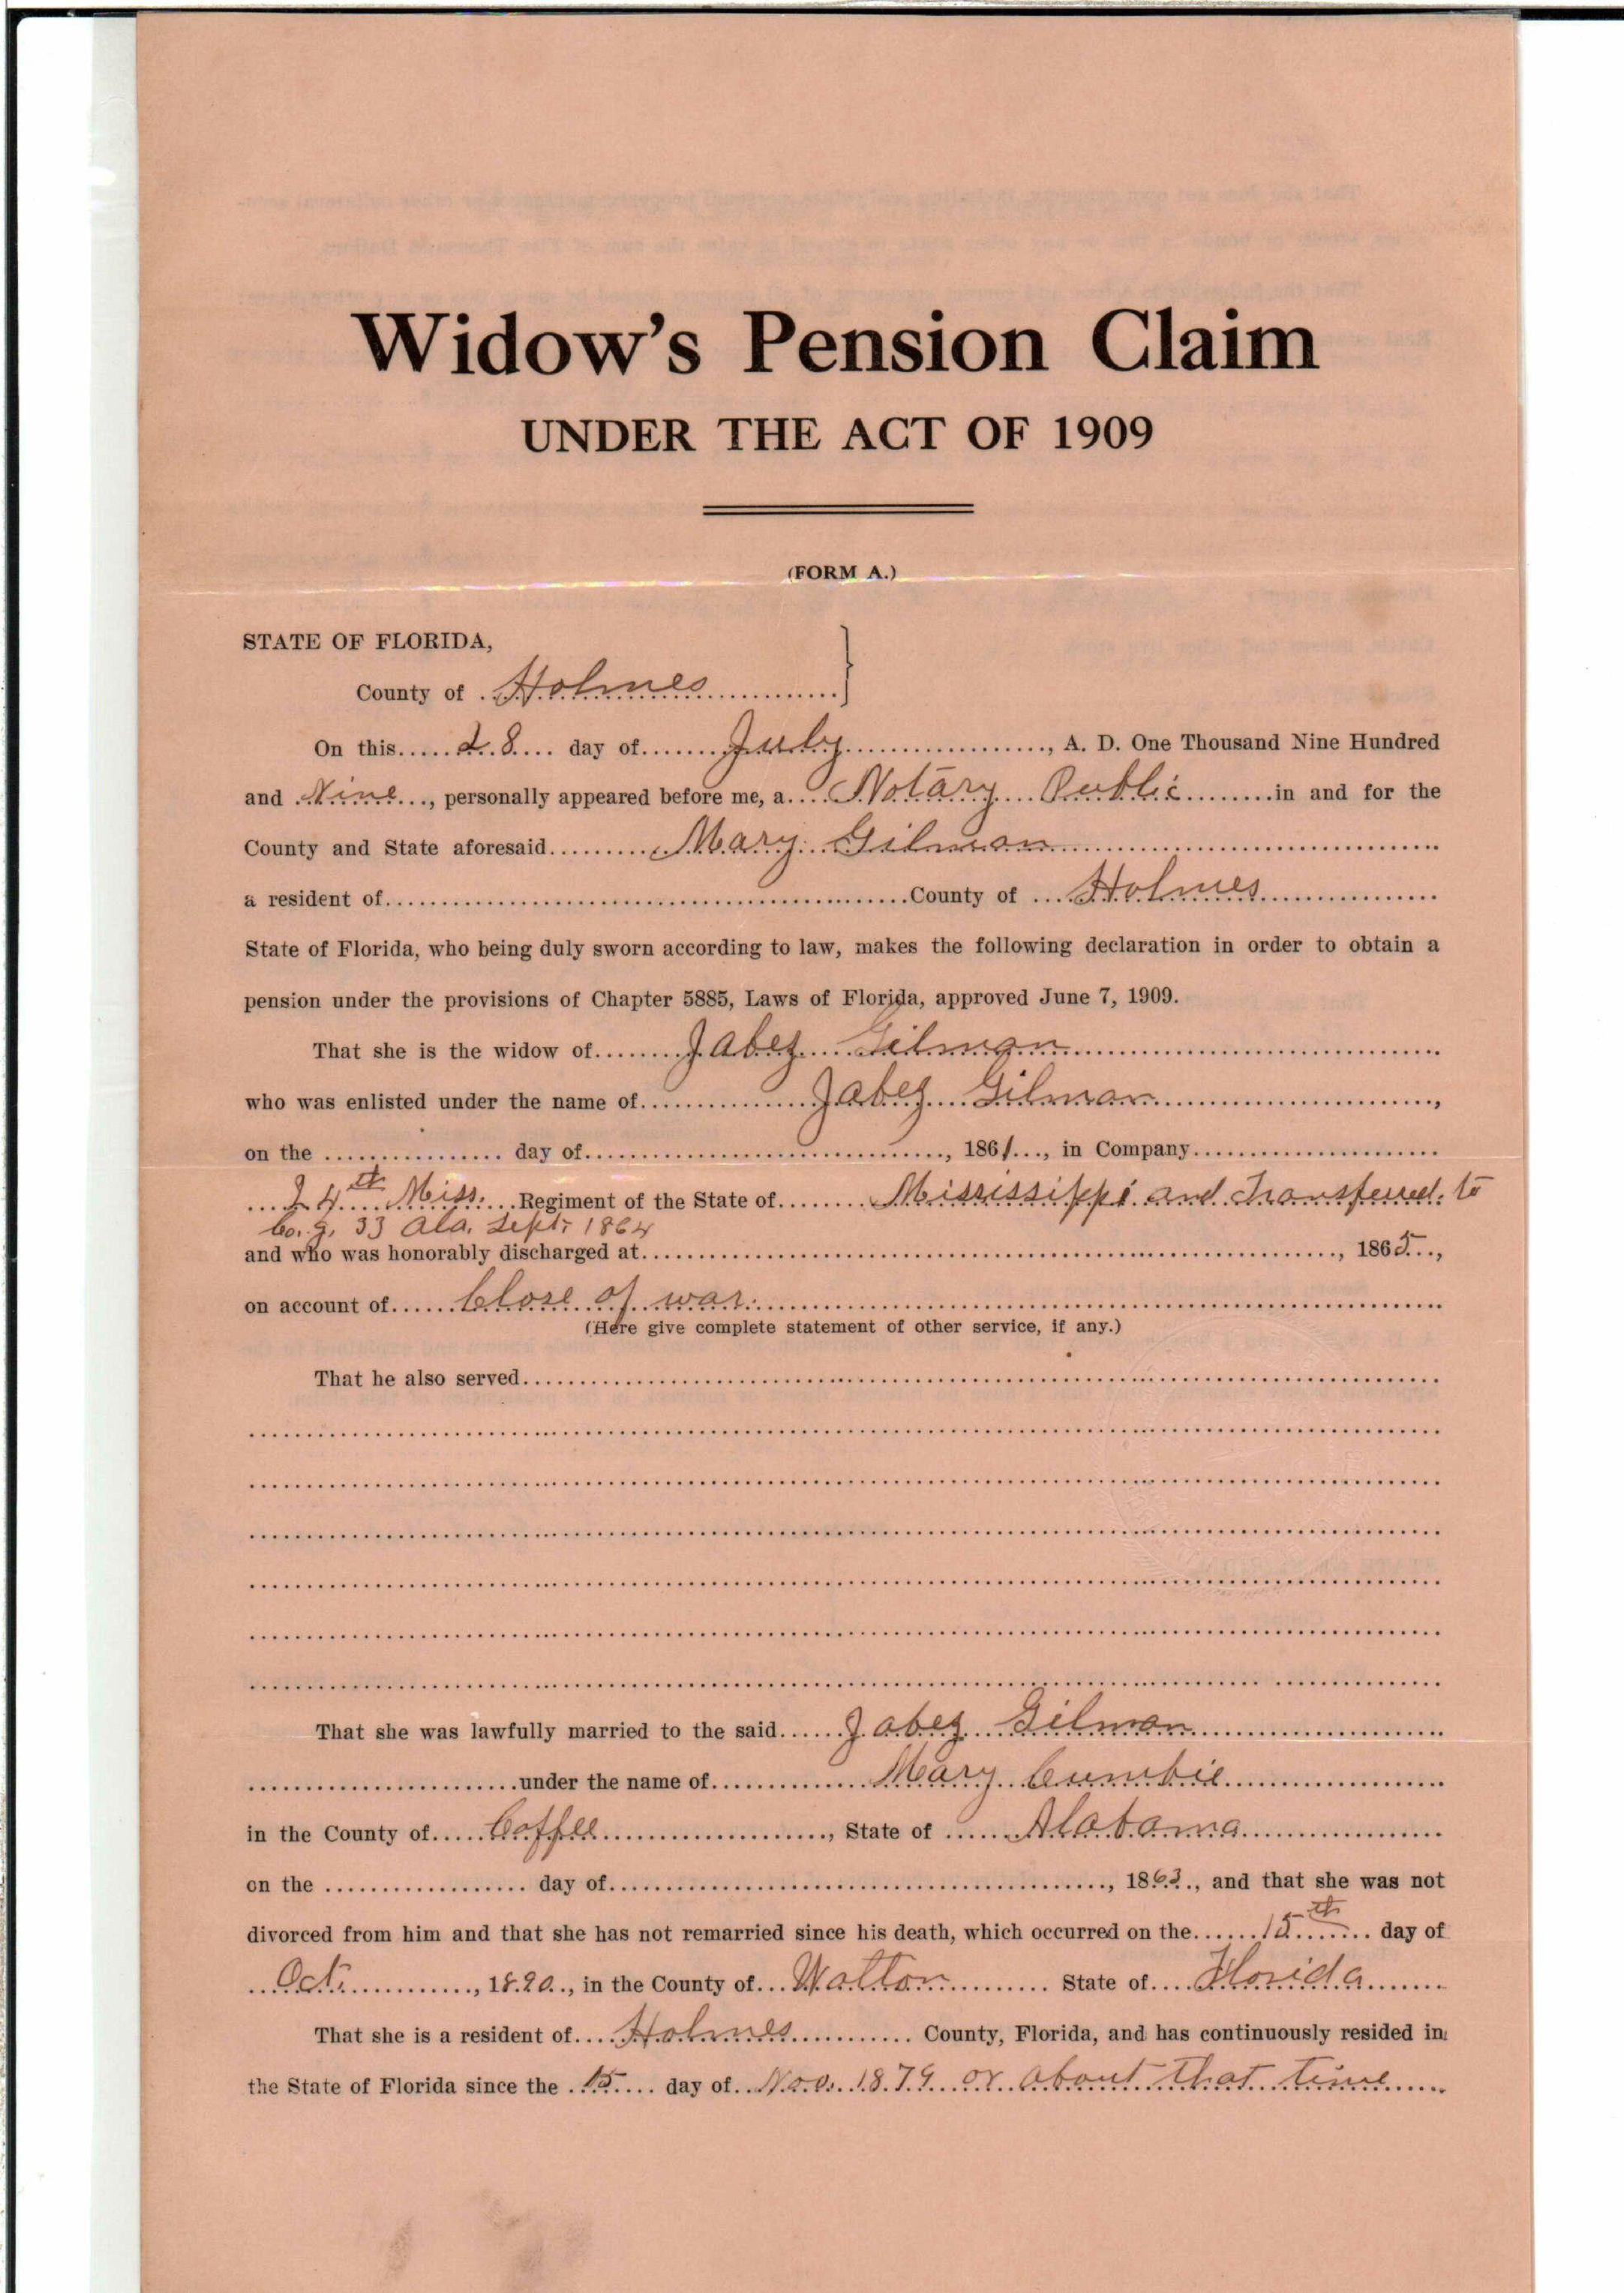 Widow's Pension Claim
UNDER THE ACT OF 1909
(FORM A.)
STATE OF FLORIDA,
County of Holmes
On this 28 day of July, A. D. One Thousand Nine Hundred
and Nine, personally appeared before me, a Notary Public in and for the
County and State aforesaid Mary Gilman
a resident of County of Holmes
State of Florida, who being duly sworn according to law, makes the following declaration in order to obtain a
pension under the provisions of Chapter 5885, Laws of Florida, approved June 7, 1909.
That she is the widow of Jabez Gilman
who was enlisted under the name of Jabez Gilman,
on the day of, 1861, in Company
24th Miss. Regiment of the State of Mississippi and Transferred to
Co. g, 33 Ala. Sept. 1864
and who was honorably discharged at, 1865,
on account of Close of war.
(Here give complete statement of other service, if any.)
That he also served
That she was lawfully married to the said Jabez Gilman
under the name of Mary Cumbie
in the County of Coffee, State of Alabama
on the day of, 1863, and that she was not
divorced from him and that she has not remarried since his death, which occurred on the 15th day of
Oct., 1890, in the County of Walton State of Florida
That she is a resident of Holmes County, Florida, and has continuously resided in
the State of Florida since the 15 day of Nov. 1879 or about that time